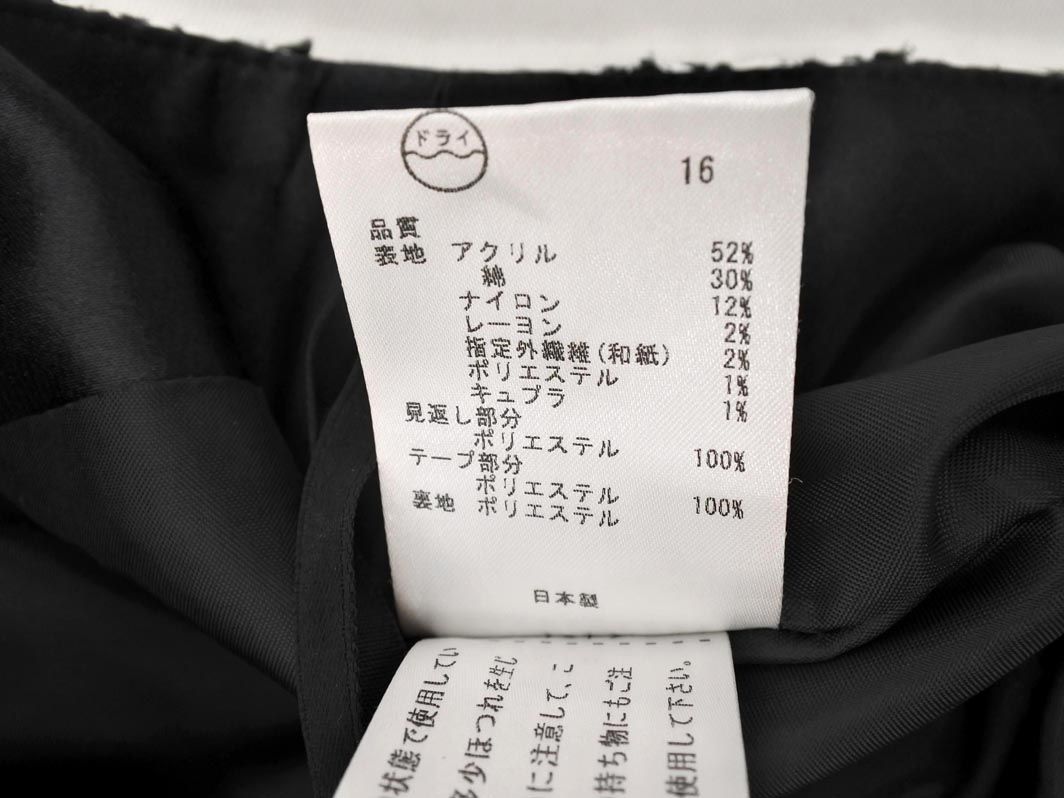 ドライ
16
品質
表地 アクリル 52%
綿 30%
ナイロン 12%
レーヨン 2%
指定外繊維(和紙) 2%
ポリエステル 1%
キュプラ 1%
見返し部分
ポリエステル 100%
テープ部分
ポリエステル 100%
裏地 ポリエステル
日本製
状態で使用してい
多少ほつれを生じ
に注意して、こ
持ち物にもご注
使用して下さい。